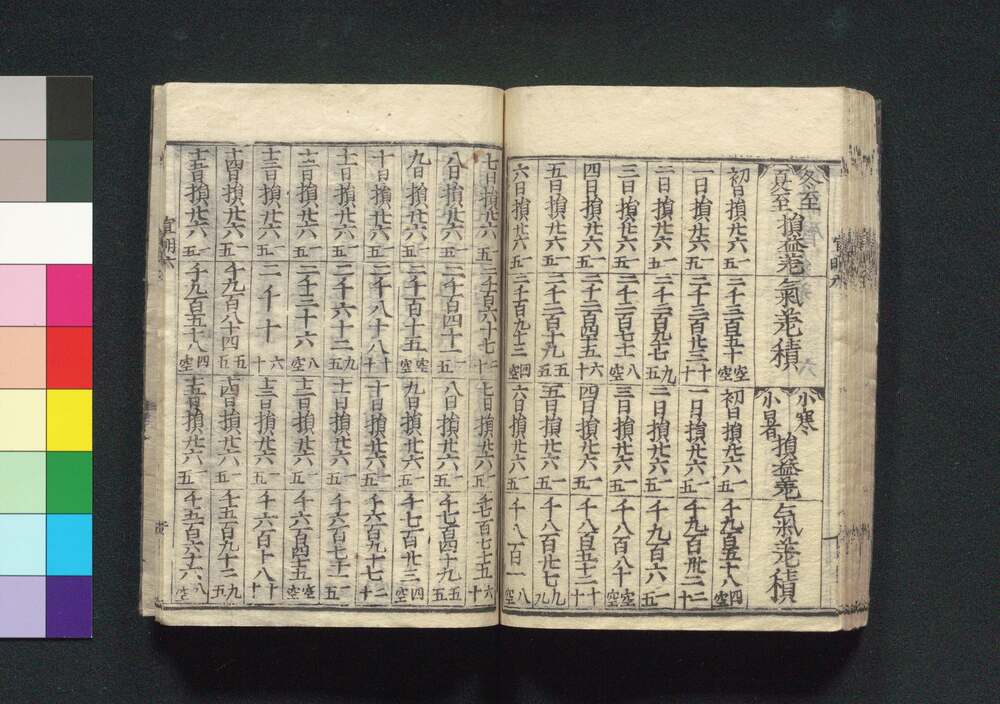 冬至 夏至 損益差 氣差積
小寒 小暑 損益差 氣差積
初日損廿六 一五 二千三百五十 空空 初日損廿六 一五 千九百五十八 四空
一日損廿六 一五 二千三百廿三 十十 一日損廿六 一五 千九百卅二 二十
二日損廿六 一五 二千二百九十七 九五 二日損廿六 一五 千九百六 一五
三日損廿六 一五 二千二百七十一 八空 三日損廿六 一五 千八百八十 空空
四日損廿六 一五 二千二百四十五 六十 四日損廿六 一五 千八百五十三 十十
五日損廿六 一五 二千二百十九 五五 五日損廿六 一五 千八百廿七 九
六日損廿六 一五 二千百九十三 四空 六日損廿六 一五 千八百一 八空
宣明六
七日損廿六 一五 二千百六十七 二十 七日損廿六 一五 千七百七十五 六十
八日損廿六 一五 二千百四十一 一五 八日損廿六 一五 千七百四十九 五五
九日損廿六 一五 二千百十五 空空 九日損廿六 一五 千七百廿三 四空
十日損廿六 一五 二千八十八 十十 十日損廿六 一五 千六百九十七 二十
十一日損廿六 一五 二千六十二 九五 十一日損廿六 一五 千六百七十一 一五
十二日損廿六 一五 二千三十六 八空 十二日損廿六 一五 千六百四十五 空空
十三日損廿六 一五 二千十 六十 十三日損廿六 一五 千六百十八 十十
十四日損廿六 一五 千九百八十四 五五 十四日損廿六 一五 千五百九十二 九五
十五日損廿六 一五 千九百五十八 四空 十五日損廿六 一五 千五百六十六 八空
宣明六